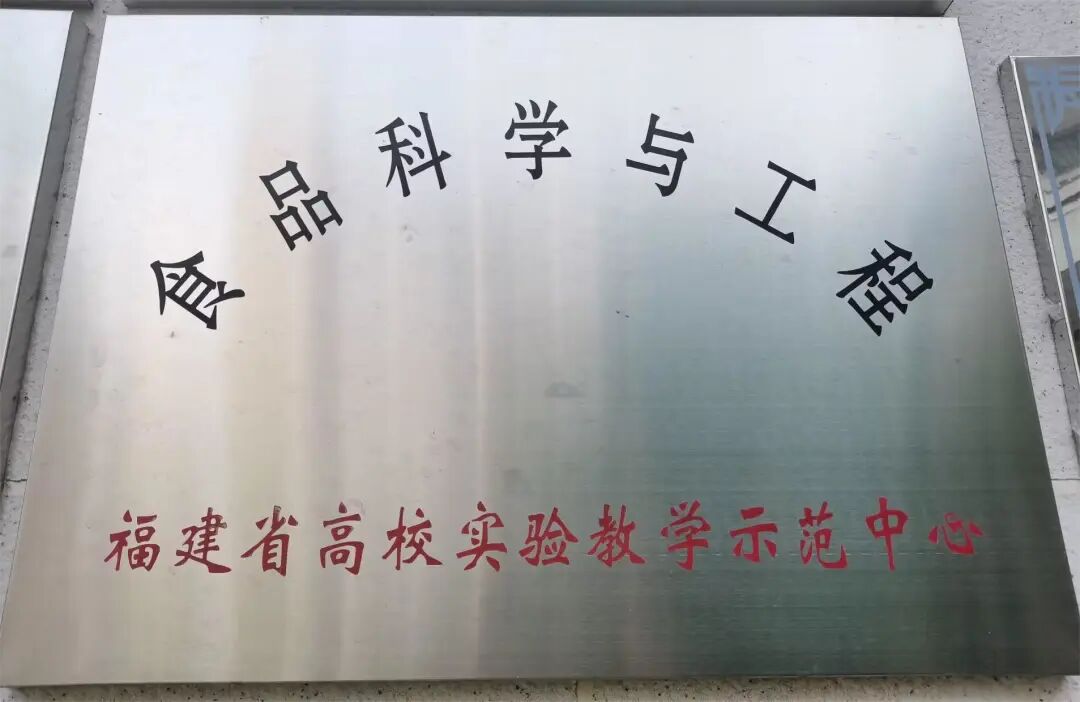 食品科学与工程
福建省高校实验教学示范中心